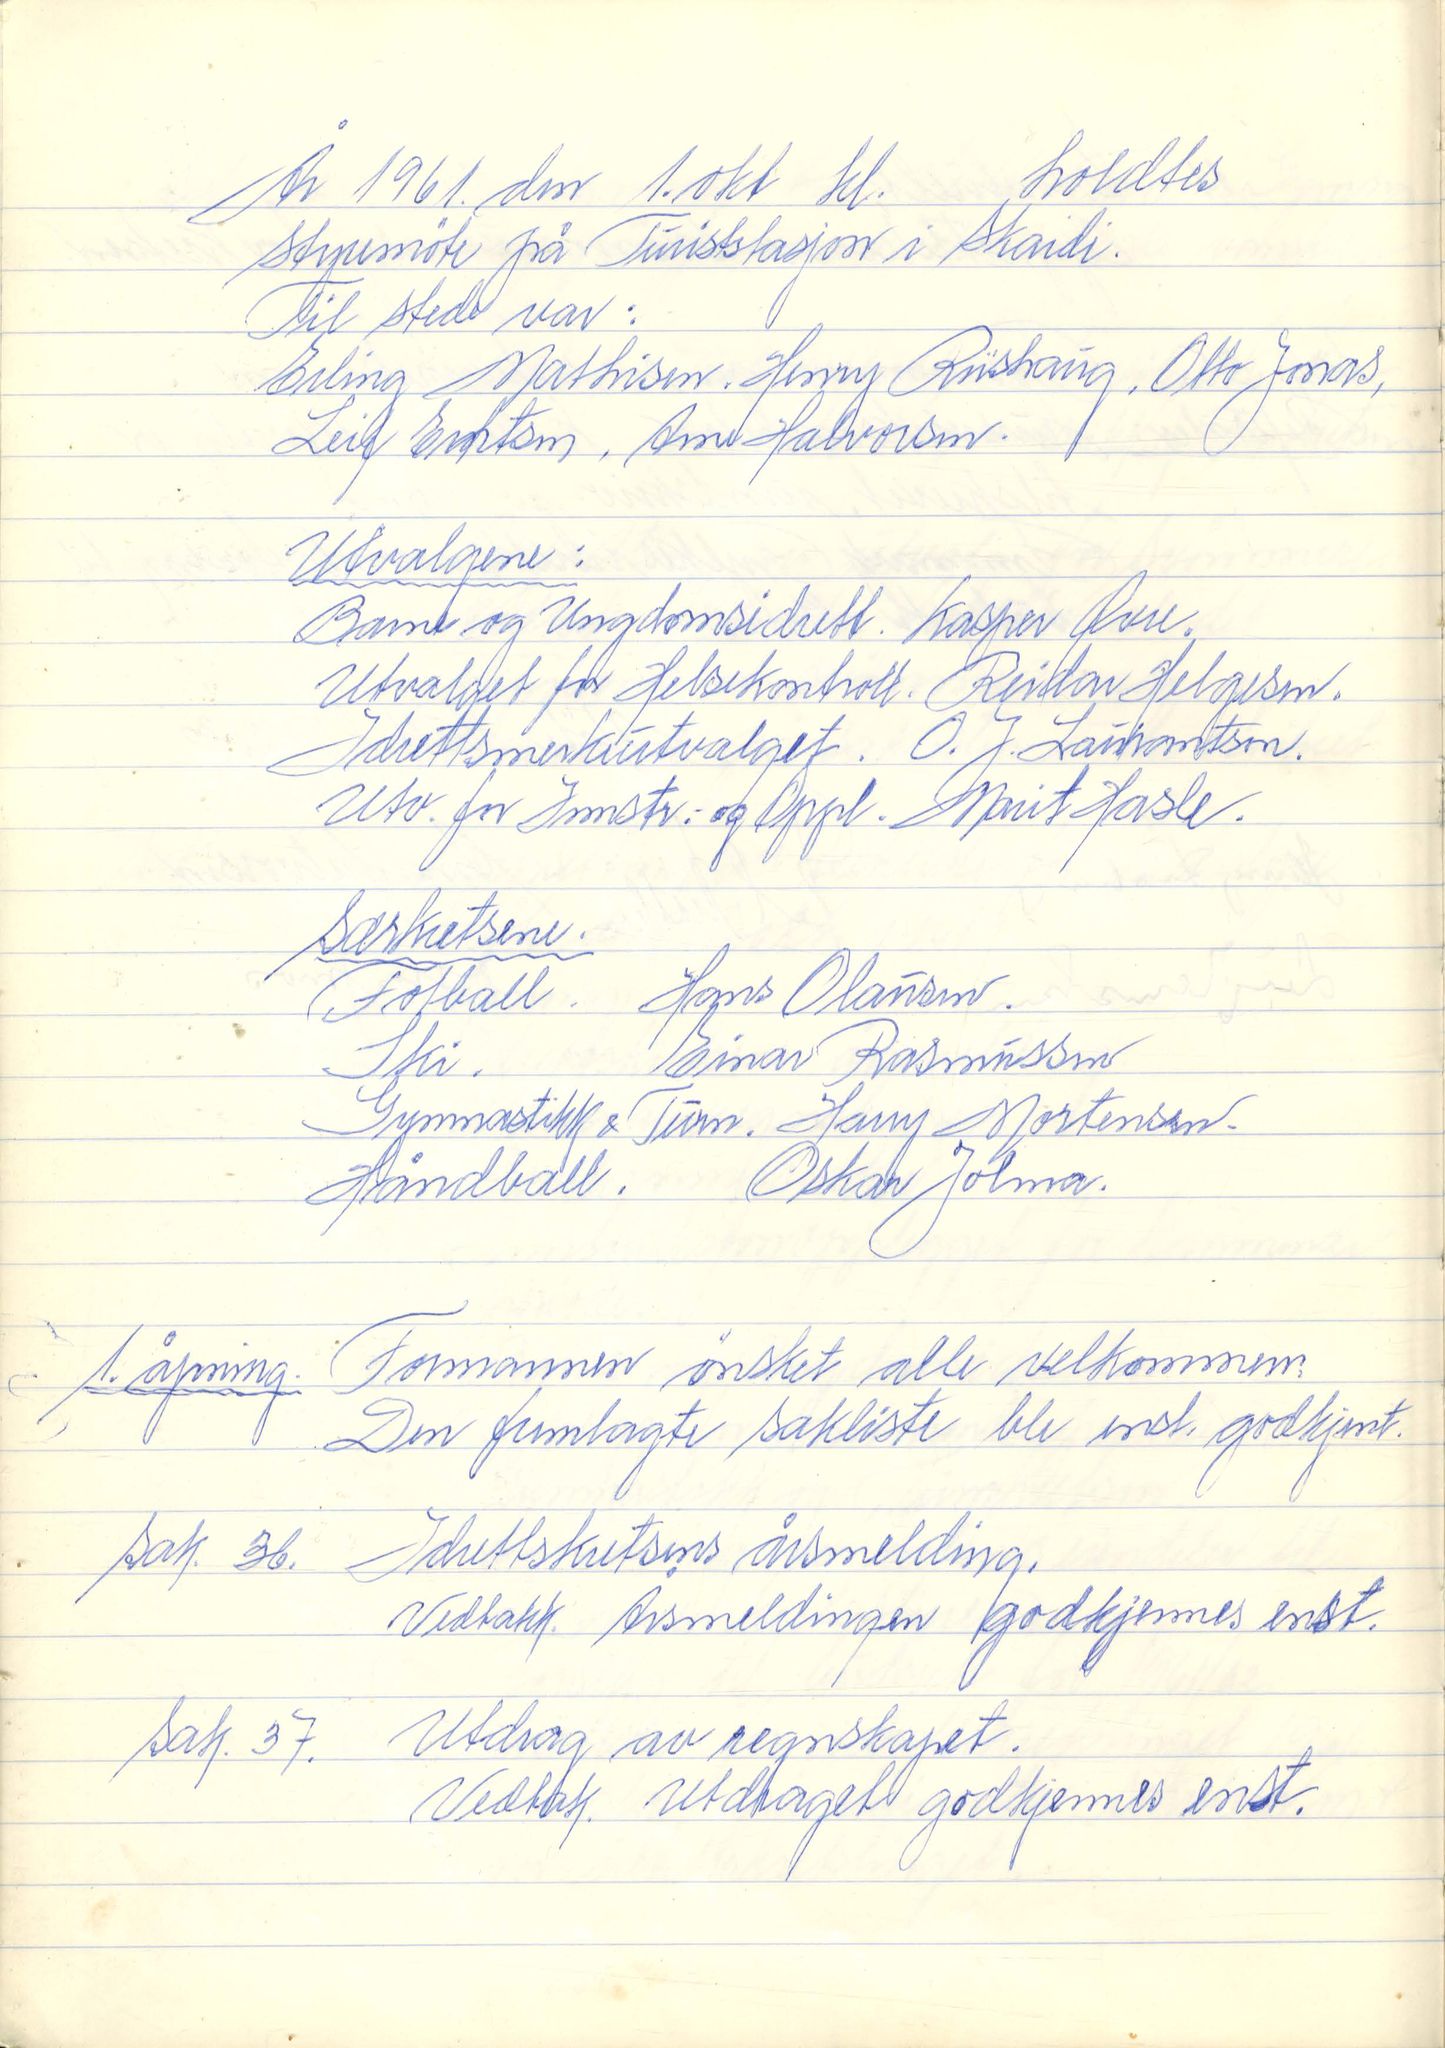 År 1961. den 1. okt kl. holdtes
styremöte på Turiststasjon i Skaidi.
Til stede var:
Erling Mathisen. Henry Riishaug, Otto Jonas,
Leif Arne Halvorsen.
Utvalgene:
Barne og Ungdomsidrett. Kasper
Utvalget for Helsekontroll. Reidar Helgesen.
Idrettsmerkeutvalget. O. J.
Utv. for Instr.- og Oppl. Marit Hasle.
Særkretsene.
Fotball. Hans Olaussen.
Ski. Einar Rasmussen
Gymnastikk & Turn. Harry Mortensen.
Håndball. Oskar Jolma.
1. åpning. Formannen önsket alle velkommen.
Den fremlagte sakliste ble enst. godkjent.
Sak. 36. Idrettskretsens årsmelding.
Vedtakk. Årsmeldingen godkjennes enst.
Sak. 37. Utdrag av regnskapet.
Vedtak. Utdraget godkjennes enst.